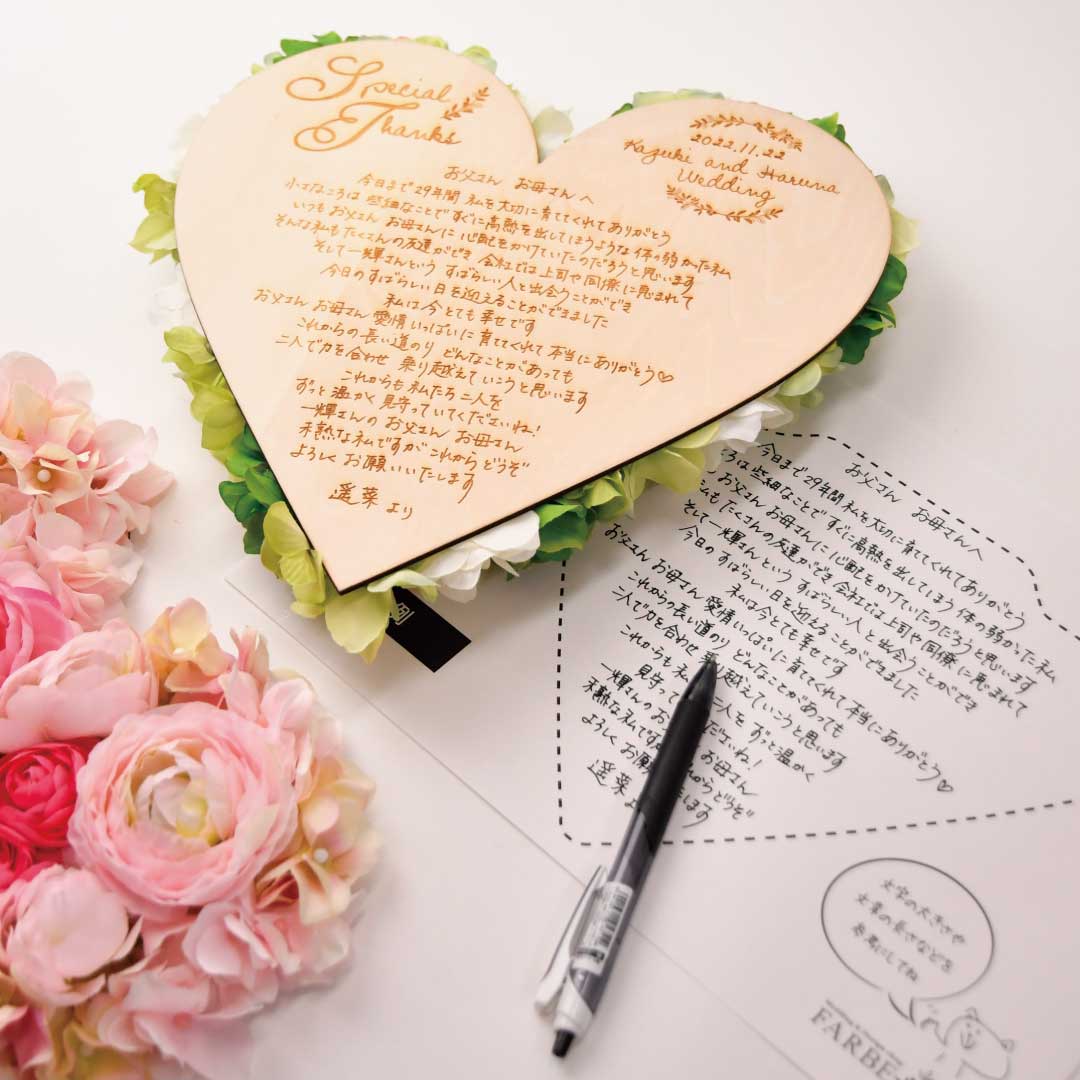 Special
Thanks
2022.11.22
Kazuki and Haruna
Wedding
お父さん お母さんへ
今日まで29年間 私を大切に育ててくれてありがとう
小さなころは 些細なことで すぐに高熱を出してしまうような 体の弱かった私
いつも お父さん お母さんに 心配をかけていたのだろうと思います
そんな私も たくさんの友達ができ 会社では上司や同僚に恵まれて
そして一輝さんという すばらしい人と出会うことができ
今日のすばらしい日を迎えることができました
私は今とても幸せです
お父さん お母さん 愛情いっぱいに 育ててくれて 本当にありがとう♡
これからの長い道のり どんなことがあっても
二人で力を合わせ 乗り越えていこうと思います
これからも 私たち二人を
ずっと 温かく 見守っていてくださいね!
一輝さんの お父さん お母さん
未熟な私ですが これから どうぞ
よろしく お願いいたします
遥菜 より
お父さん お母さんへ
今日まで29年間 私を大切に育ててくれてありがとう
ころは 些細なことで すぐに高熱を出してしまう 体の弱かった私
お父さん お母さんに 心配をかけていたのだろうと思います
私も たくさんの友達ができ 会社では上司や同僚に恵まれて
そして一輝さんという すばらしい人と出会うことができ
今日のすばらしい日を迎えることができました
私は今とても幸せです
お父さん お母さん 愛情いっぱいに育ててくれて 本当にありがとう♡
これからの長い道のり どんなことがあっても
二人で力を合わせ 越えていこうと思います
これからも 私 二人を ずっと温かく
見守っ くださいね!
一輝さんの お お母さん
未熟な私です これからどうぞ
よろしく お願 します
遥菜 よ
文字の大きさや
文章の長さなどを
参考にしてね
FARBE